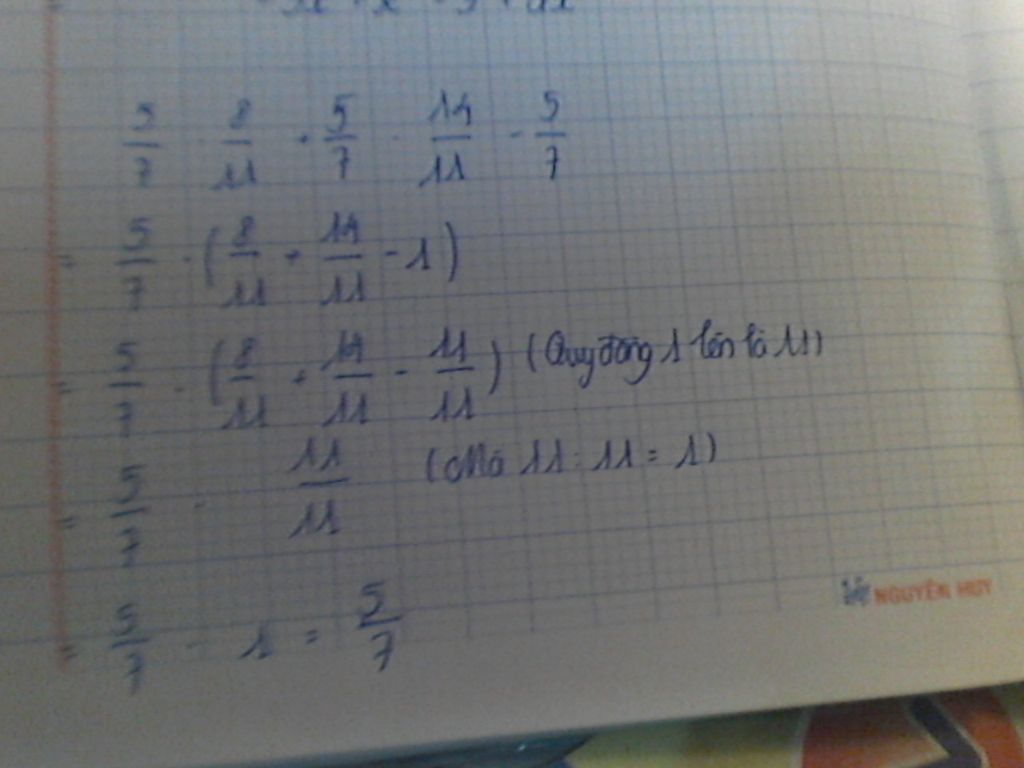 5/7 · 8/11 + 5/7 · 14/11 - 5/7
= 5/7 · (8/11 + 14/11 - 1)
= 5/7 · (8/11 + 14/11 - 11/11) (Quy đồng 1 lên là 11)
= 5/7 · 11/11 (Mà 11 : 11 = 1)
= 5/7 · 1 = 5/7
NGUYÊN HUY